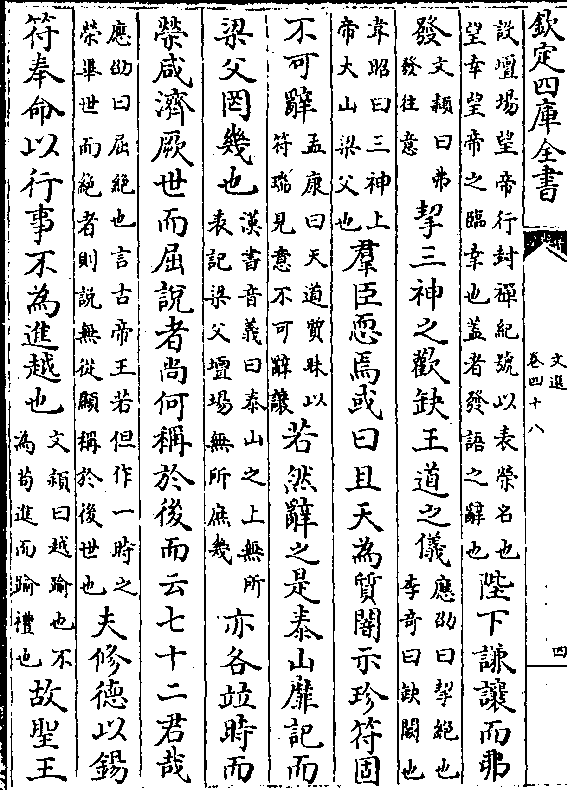 欽定四庫全書
文選
卷四十八
四
設壇場望帝行封禪紀號以表榮名也
望幸望帝之臨幸也蓋者發語之辭也
陛下謙讓而弗
發
文穎曰弗
發往意
挈三神之歡缺王道之儀
應劭曰挈絶也
李奇曰缺闕也
韋昭曰三神上
帝大山梁父也
羣臣恧焉或曰且天為質闇示珍符固
不可辭
孟康曰天道質昧以
符瑞見意不可辭讓
若然辭之是泰山靡記而
梁父罔幾也
漢書音義曰泰山之上無所
表記梁父壇場無所庶幾
亦各竝時而
榮咸濟厥世而屈說者尚何稱於後而云七十二君哉
應劭曰屈絶也言古帝王若但作一時之
榮畢世而絶者則說無從顯稱於後世也
夫修德以錫
符奉命以行事不為進越也
文穎曰越踰也不
為苟進而踰禮也
故聖王